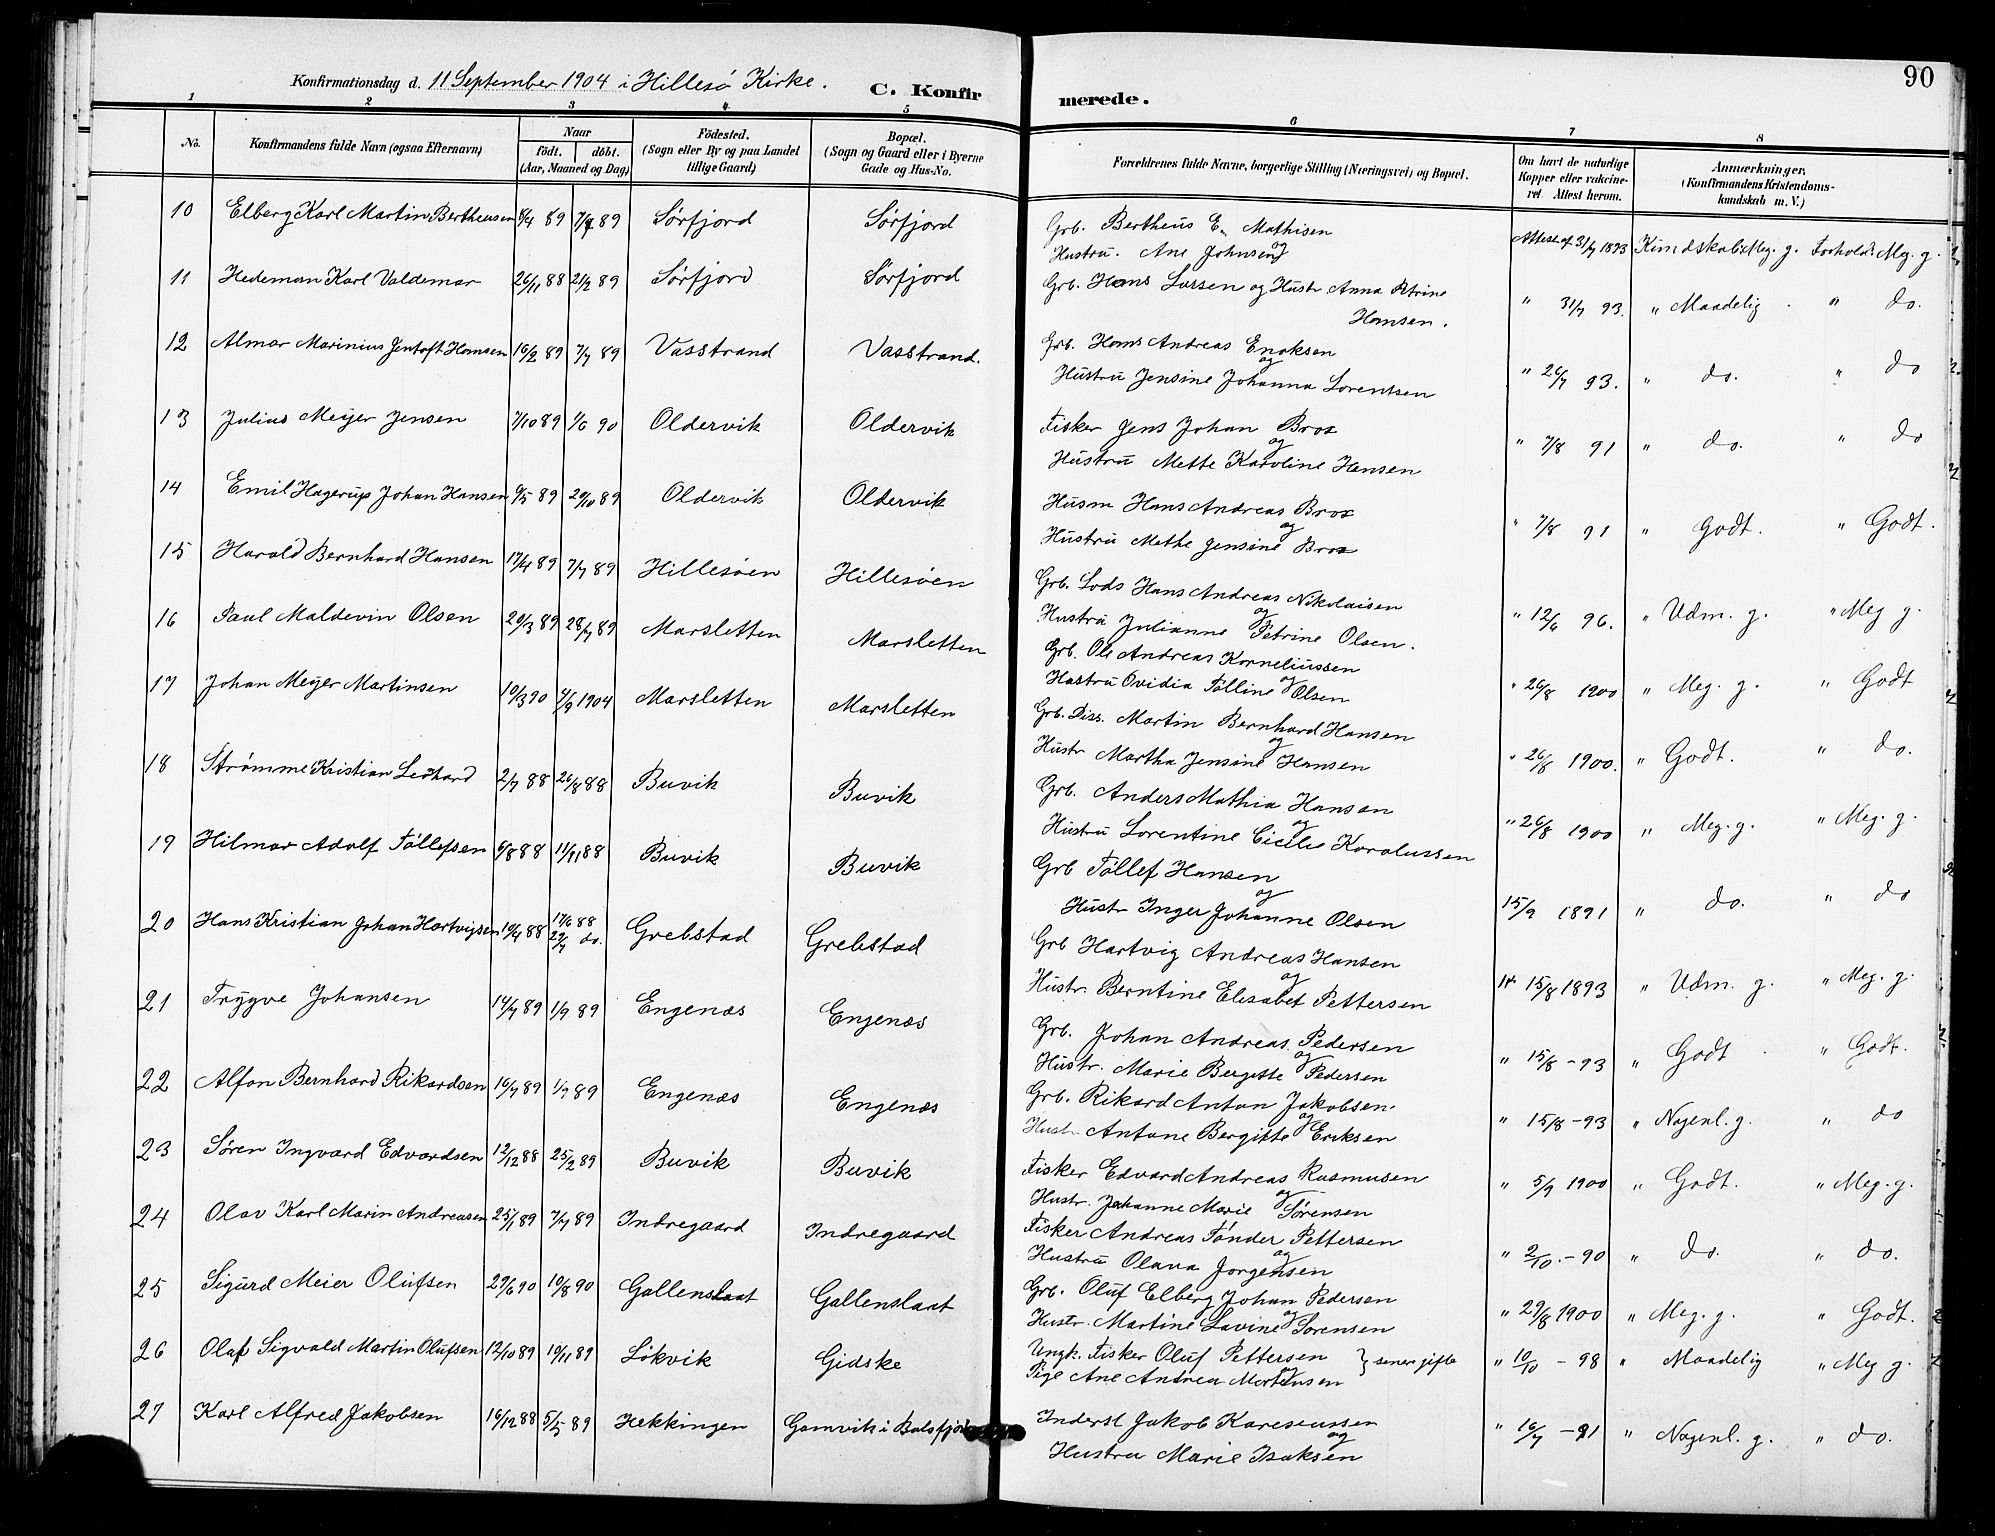 90
Konfirmationsdag d. 11 September 1904 i Hillesø Kirke.
C. Konfirmerede.
1 2 3 4 5 6 7 8
No.
Konfirmandens fulde Navn (ogsaa Efternavn)
Naar
födt. döbt.
(Aar, Maaned og Dag)
Födested.
(Sogn eller By og paa Landet
tillige Gaard)
Bopæl.
(Sogn og Gaard eller i Byerne
Gade og Hus-No.
Forældrenes fulde Navne, borgerlige Stilling (Næringsvei) og Bopæl.
Om havt de naturlige
Kopper eller vakcine-
ret Attest herom.
Anmærkninger.
(Konfirmandens Kristendoms-
kundskab m. V.)
10 Elberg Karl Martin Bertheusen 8/4 89 7/7 89 Sørfjord Sørfjord Grb. Bertheus E. Mathisen og
Hustru. Ane Johnsen Attest af 31/7 1893 Kundskab: Meg. g. Forhold: Meg. g.
11 Hedeman Karl Valdemar 26/11 88 21/2 89 Sørfjord Sørfjord Grb. Hans Larsen og Hustr Anna Petrine
Hansen. " 31/7 93. " Maadelig " do.
12 Almar Marinius Jentoft Hansen 16/2 89 7/7 89 Vasstrand Vasstrand. Grb. Hans Andreas Enoksen og
Hustru Jensine Johanna Lorentsen " 26/7 93. " do. " do
13 Julius Meyer Jensen 7/10 89 1/6 90 Oldervik Oldervik Fisker Jens Johan Brox og
Hustru Mette Karoline Hansen " 7/8 91 " do. " do
14 Emil Hagerup Johan Hansen 9/5 89 20/10 89 Oldervik Oldervik Husm Hans Andreas Brox og
Hustru Methe Jensine Brox " 7/8 91 " Godt. " Godt.
15 Harald Bernhard Hansen 17/4 89 7/7 89 Hillesøen Hillesøen Grb. Lods Hans Andreas Nikolaisen og
Hustru Julianne Petrine Olsen. " 12/6 96. " Udm. g. " Meg g.
16 Paul Maldevin Olsen 29/3 89 28/7 89 Marsletten Marsletten Grb. Ole Andreas Korneliussen og
Hustru Ovidia Tølline Olsen " 26/8 1900 " Meg. g. " Godt
17 Johan Meyer Martinsen 10/3 90 4/9 1904 Marsletten Marsletten Grb. Diss. Martin Bernhard Hansen og
Hustr Martha Jensine Hansen " 26/8 1900. " Godt. " do.
18 Strømme Kristian Ledhard 2/7 88 26/8 88 Buvik Buvik Grb. Anders Mathia Hansen og
Hustru Lorentine Cicilie Karolussen " 26/8 1900 " Meg. g. " Meg. g.
19 Hilmar Adolf Tøllefsen 6/8 88 11/11 88 Buvik Buvik Grb Tøllef Hansen og
Hustr Inger Johanne Olsen 15/9 1891 " do. " do
20 Hans Kristian Johan Hartvigsen 10/4 88 17/6 88
29/7 do. Grebstad Grebstad Grb Hartvig Andreas Hansen og
Hustr. Berntine Elisabet Pettersen 15/8 1893 " Udm. g. " Meg. g.
21 Trygve Johansen 14/7 89 1/9 89 Engenæs Engenæs Grb. Johan Andreas Pedersen og
Hustr. Marie Bergitte Pedersen " 15/8 - 93 " Godt " Godt.
22 Alfon Bernhard Rikardsen 16/7 89 1/9 89 Engenæs Engenæs Grb. Rikard Anton Jakobsen og
Hustr Antone Bergitte Eriksen " 15/8 - 93 " Nogenl. g. " do
23 Søren Ingvard Edvardsen 12/12 88 25/2 89 Buvik Buvik Fisker Edvard Andreas Rasmusen og
Hustr. Johanne Marie Sørensen " 5/9 1900 " Godt. " Meg. g.
24 Olav Karl Marin Andreasen 25/1 89 7/7 89 Indregaard Indregaard Fisker Andreas Tønder Pettersen og
Hustru Olava Jørgensen " 2/10. - 90 " do. " do.
25 Sigurd Meier Olufsen 29/6 90 10/8 90 Gallenslaat Gallenslaat Grb. Oluf Elberg Johan Pedersen og
Hustr. Martine Lavine Sørensen " 29/8 1900 " Meg. g. " Godt.
26 Olaf Sigvald Martin Olufsen 12/10 89 10/11 89 Løkvik Gidske Ungk. Fisker Oluf Pettersen og
Pige Ane Andrea Mortensen } senere gifte " 10/10 - 98 " Maadelig " Meg g.
27 Karl Alfred Jakobsen 16/12 88 5/5 89 Hekkingen Gamvik i Balsfjord Inderst Jakob Karesiussen og
Hustru Marie Isaksen " 16/7 - 91 " Nogenl. g. " do.